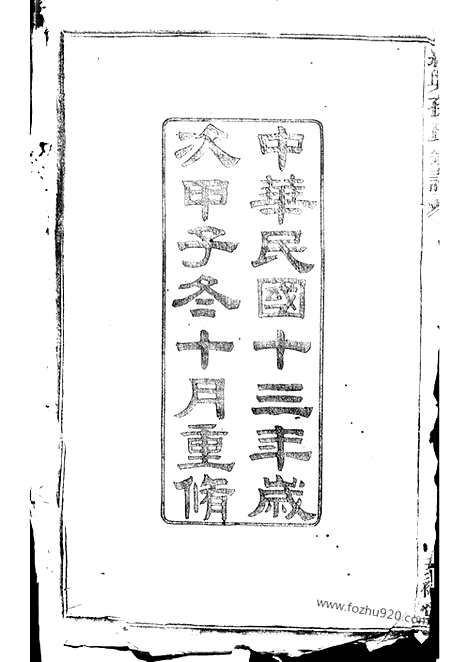 中華民國十三年歲
次甲子冬十月重脩
www.fozhu920.com